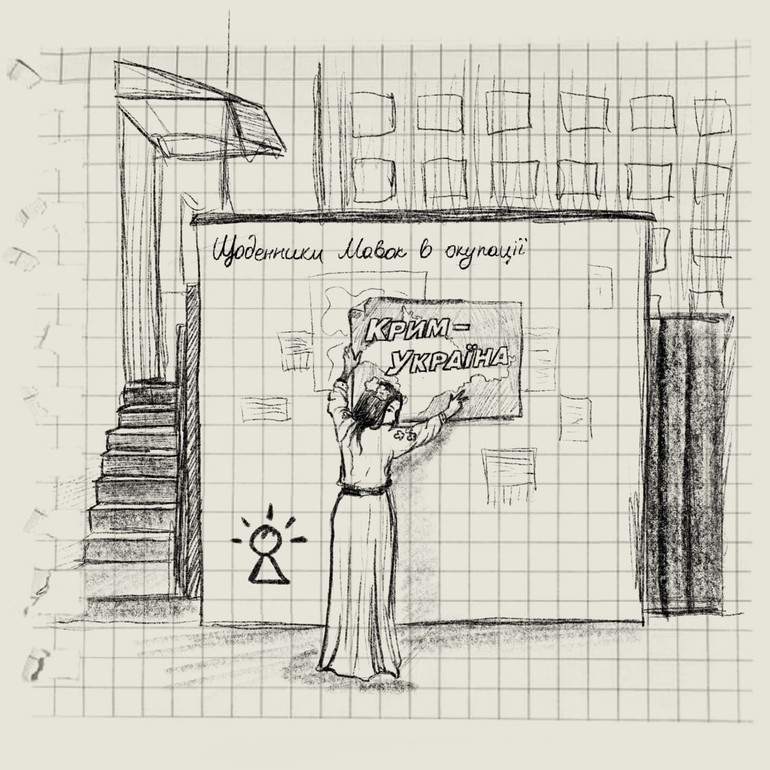 Щоденники Мавок в окупації
КРИМ–
УКРАЇНА